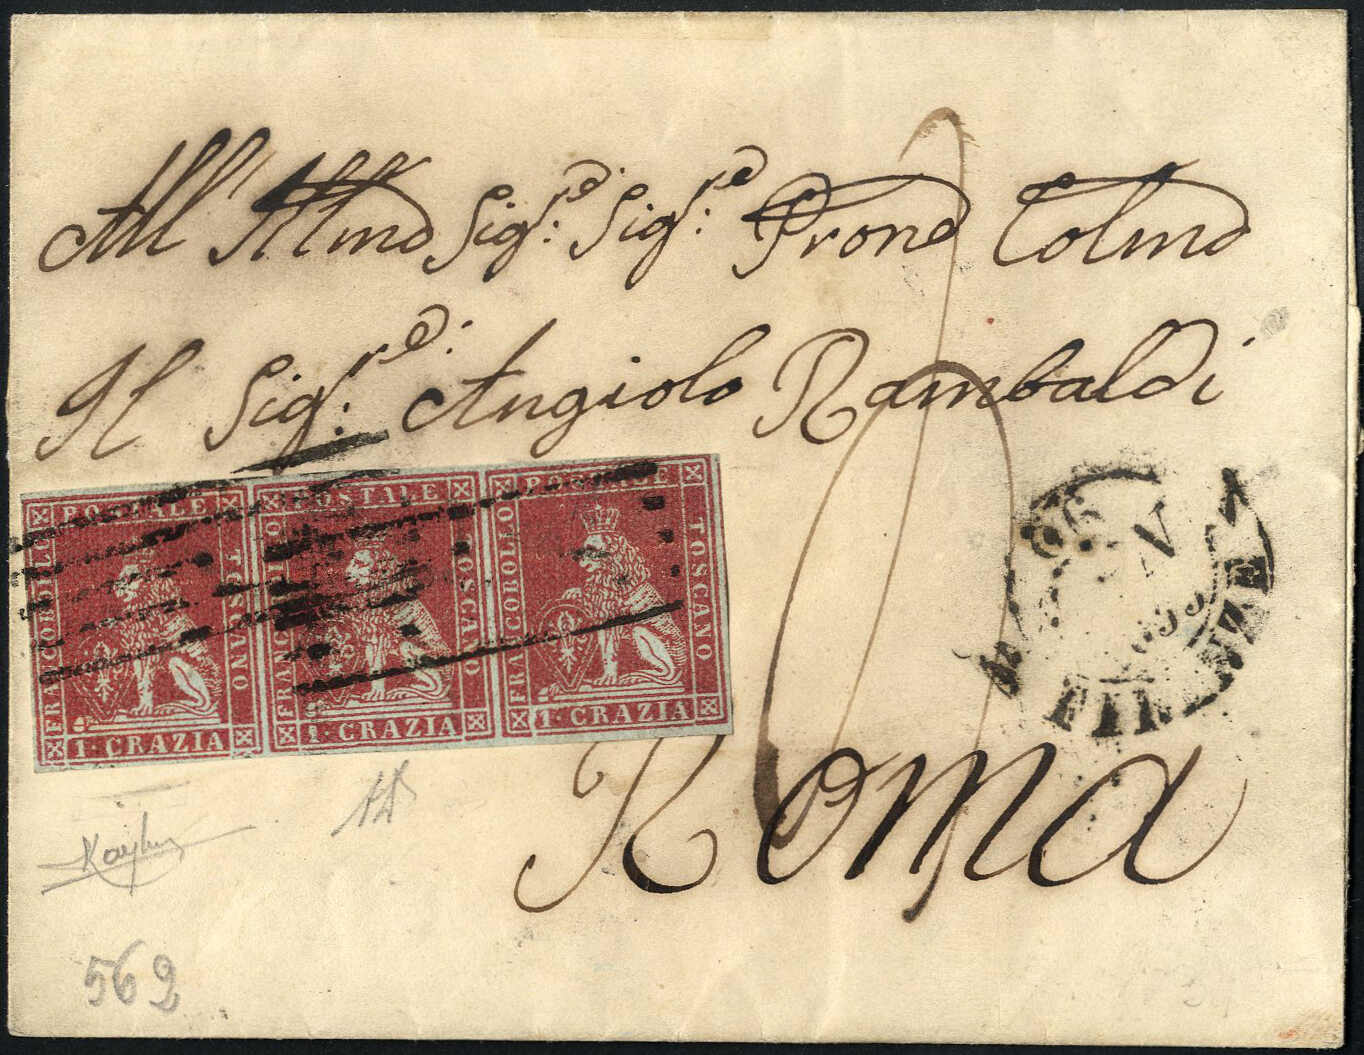 All' Illmo Sigre: Sigre: Prone Colmo
Il Sigre: Angiolo Rambaldi
POSTALE POSTALE POSTALE
FRANCOBOLLO FRANCOBOLLO FRANCOBOLLO
TOSCANO TOSCANO TOSCANO
1·CRAZIA 1·CRAZIA 1·CRAZIA
FIRENZE
Roma
AD
562